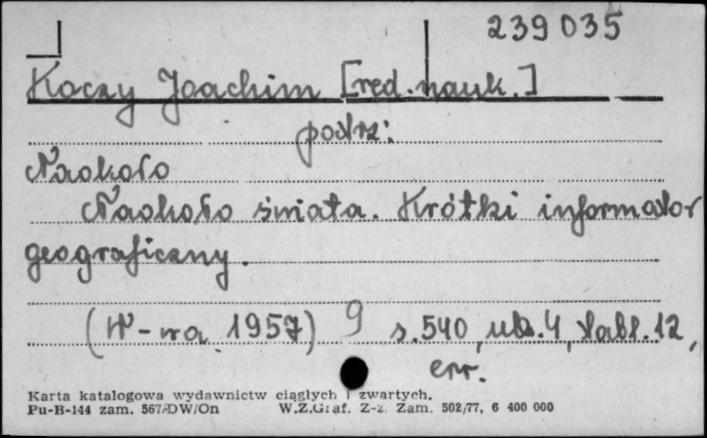 239 035
Koczy Joachim [red. nauk.]
patrz:
Naokoło
Naokoło świata. Krótki informator
geograficzny.
(W-wa 1957) 9 s. 540, ulb. 4, tabl. 12,
err.
Karta katalogowa wydawnictw ciągłych i zwartych.
Pu-B-144 zam. 567/DW/On W.Z.Graf. Z-z. Zam. 502/77, 6 400 000